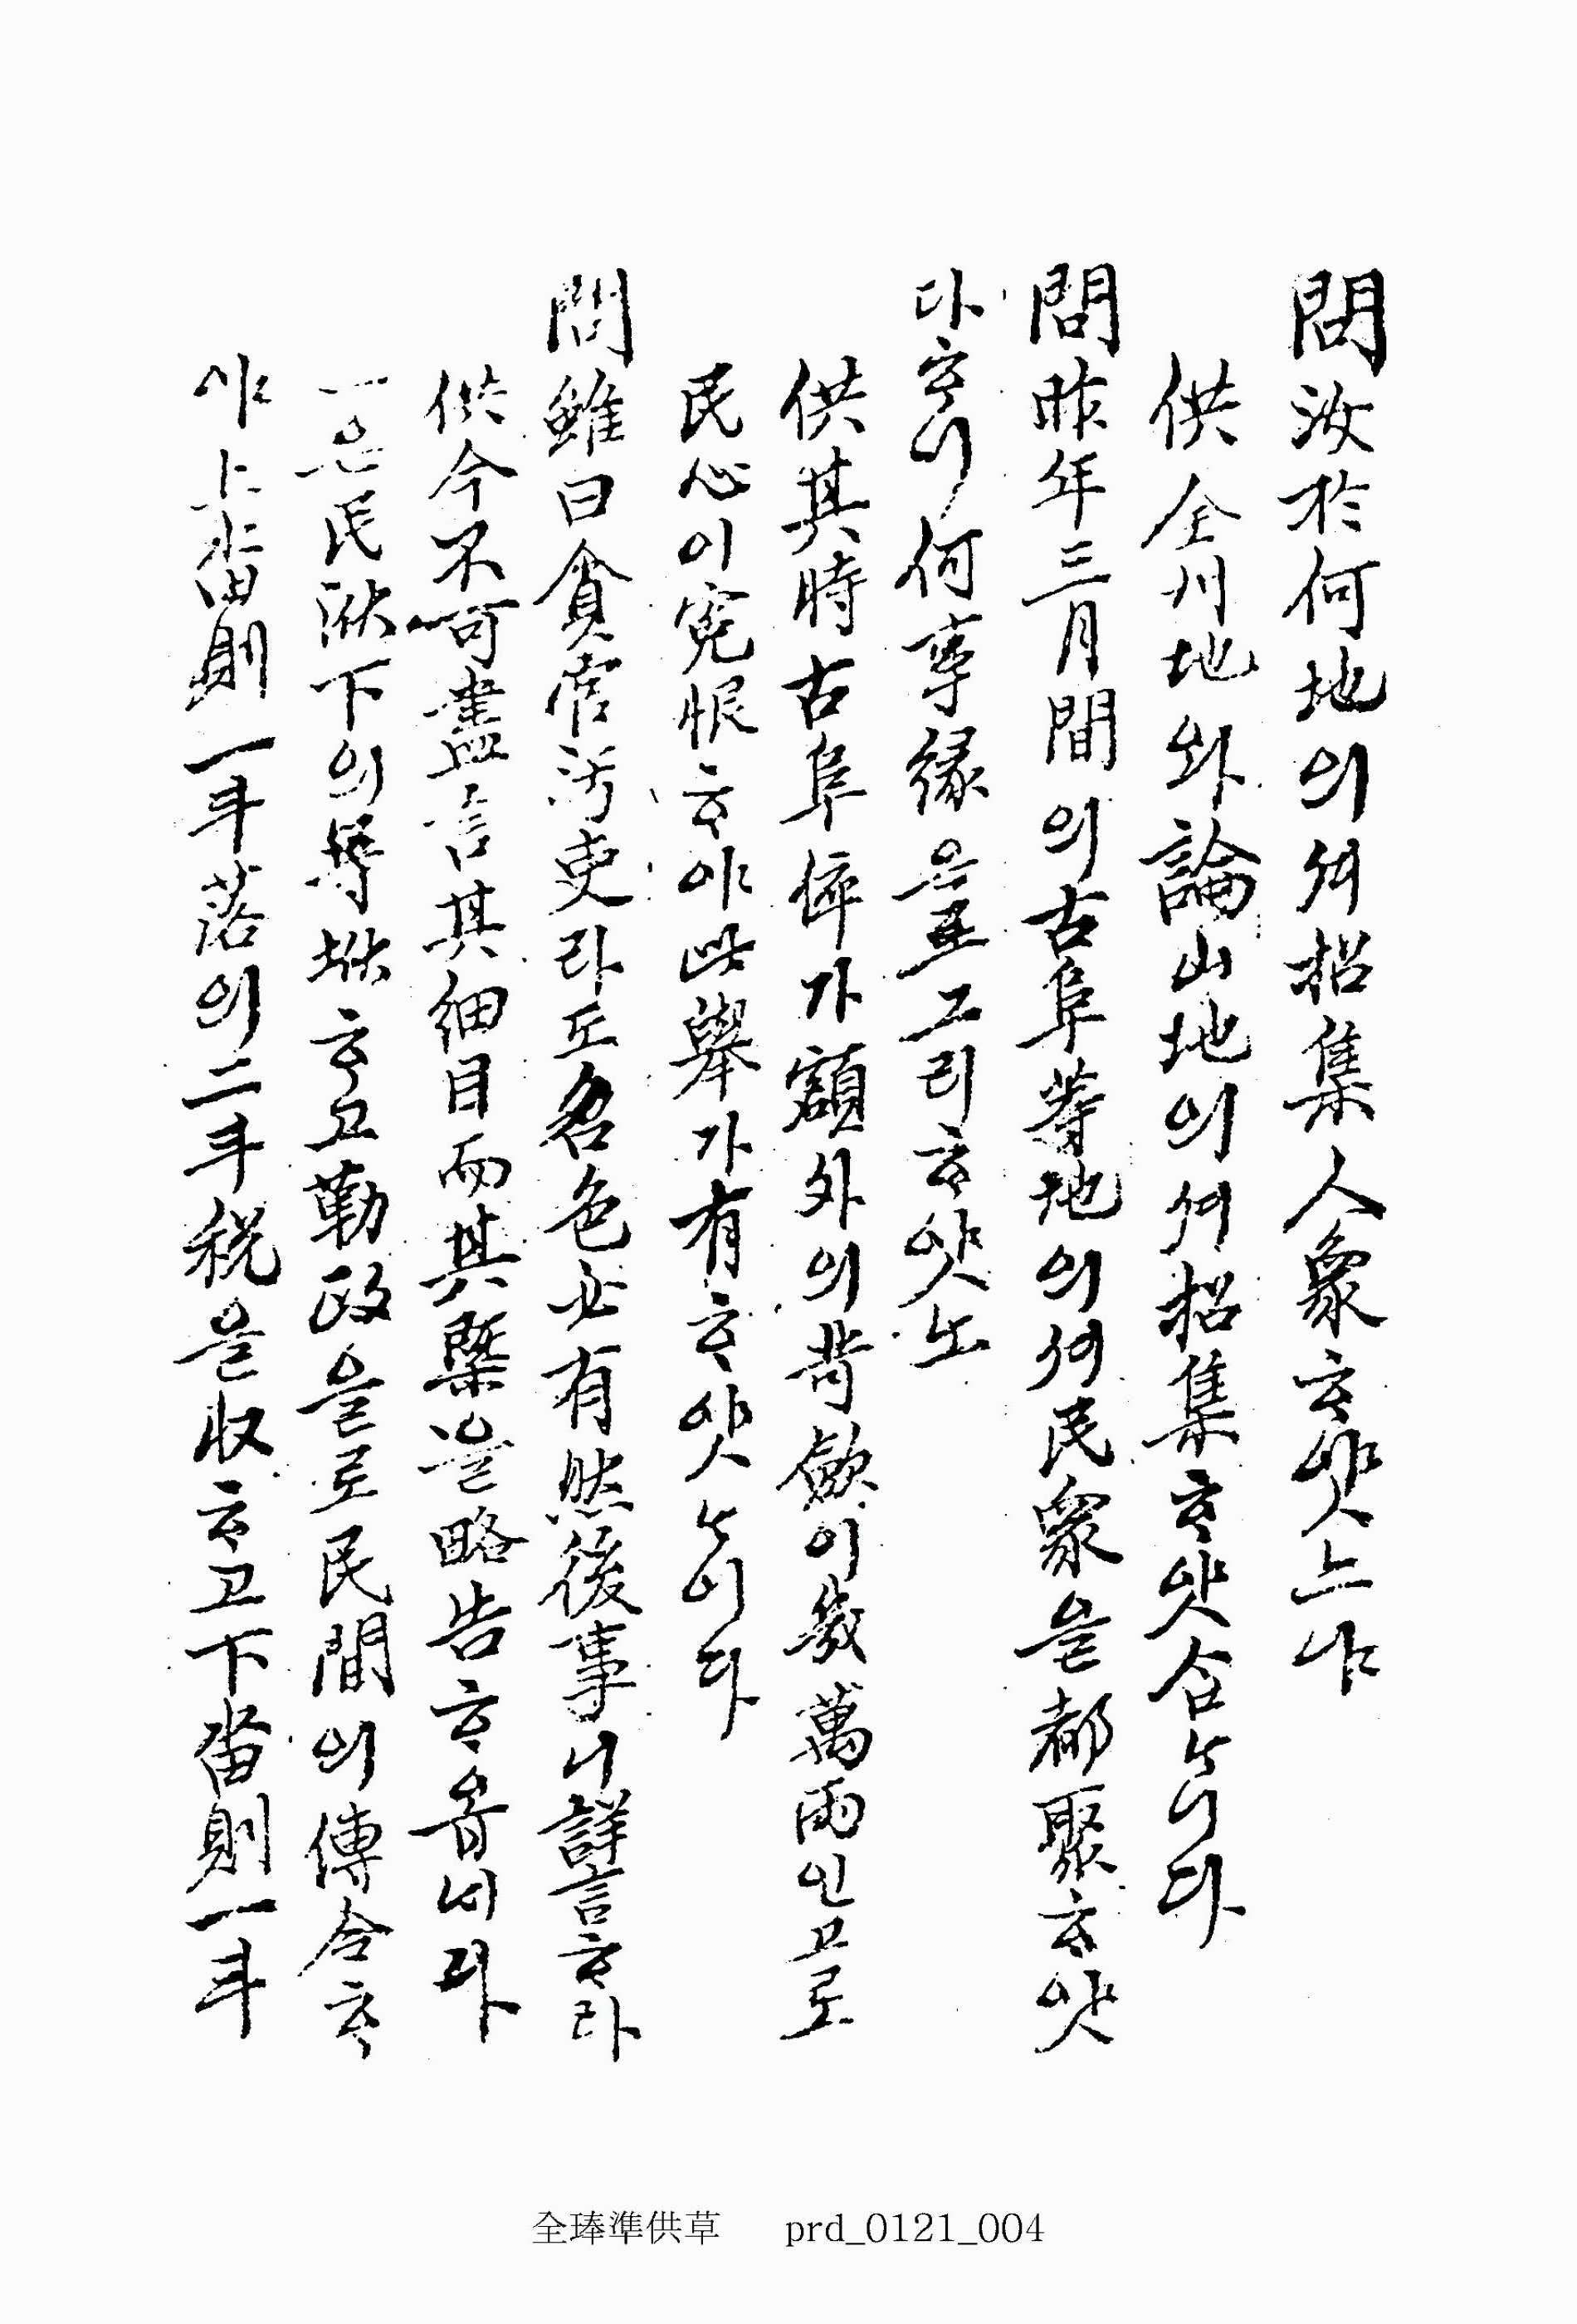 問汝於何地의셔招集人衆ᄒᆞ얏ᄂᆞ냐
供全州地와論山地의셔招集ᄒᆞ얏슴ᄂᆞ니다
問昨年三月間의古阜等地의셔民衆을都聚ᄒᆞ얏
다ᄒᆞ니何事緣을亙그리ᄒᆞ얏노
供其時古阜倅가額外의苛歛이幾萬兩인고로
民心이寃恨ᄒᆞ야此擧가有ᄒᆞ얏ᄂᆞ이다
問雖曰貪官汚吏라도名色必有然後事니詳言ᄒᆞ라
供今不可盡言其細目而其槩을略告ᄒᆞ옵ᄂᆡ다
一은民洑下의築洑ᄒᆞ고勒政을로民間의傳令ᄒᆞ
야上畓則一斗落의二斗稅을收ᄒᆞ고下畓則一斗
全琫準供草 prd_0121_004